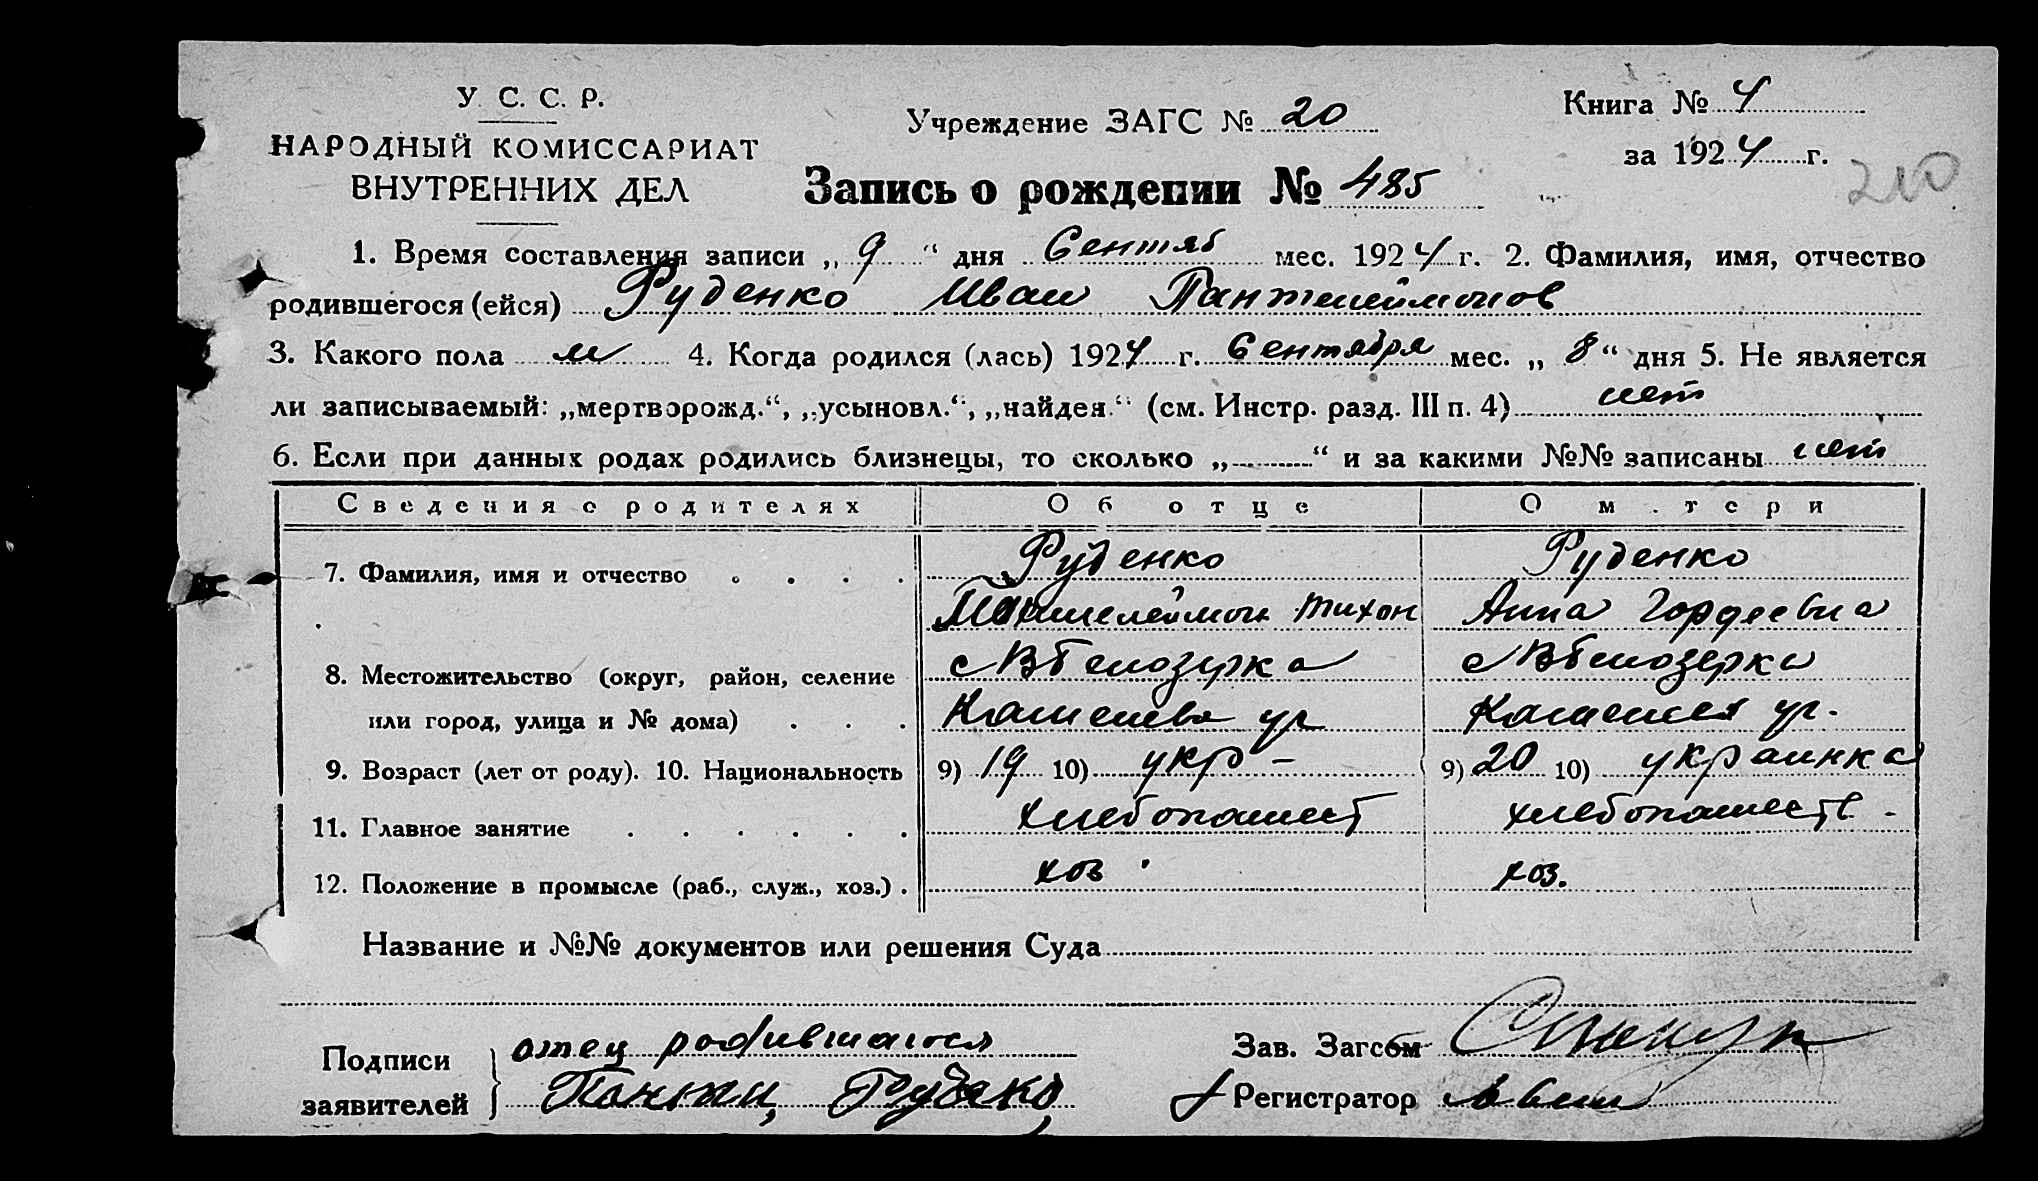 У. С. С. Р.
НАРОДНЫЙ КОМИССАРИАТ
ВНУТРЕННИХ ДЕЛ
Учреждение ЗАГС № 20
Книга № 4
за 1924 г.
210
Запись о рождении № 485
1. Время составления записи „ 9 “ дня Сентяб мес. 1924 г. 2. Фамилия, имя, отчество
родившегося (ейся) Руденко Иван Пантелеймонов
3. Какого пола м 4. Когда родился (лась) 1924 г. Сентября мес. „ 8 “ дня 5. Не является
ли записываемый: „мертворожд.“, „усыновл.“, „найден.“ (см. Инстр. разд. III п. 4) нет
6. Если при данных родах родились близнецы, то сколько „ “ и за какими №№ записаны нет
Сведения о родителях Об отце О м.тери
7. Фамилия, имя и отчество Руденко Руденко
Пантелеймон Тихон Анна Гордеевна
8. Местожительство (округ, район, селение с ВБелозерка с ВБелозерка
или город, улица и № дома) ул ул.
9. Возраст (лет от роду). 10. Национальность 9) 19 10) укр - 9) 20 10) украинка
11. Главное занятие хлебопашест хлебопашеств -
12. Положение в промысле (раб., служ., хоз.) . хоз . хоз.
Название и №№ документов или решения Суда
Подписи отец родившагося Зав. Загсом
заявителей Руденко Регистратор